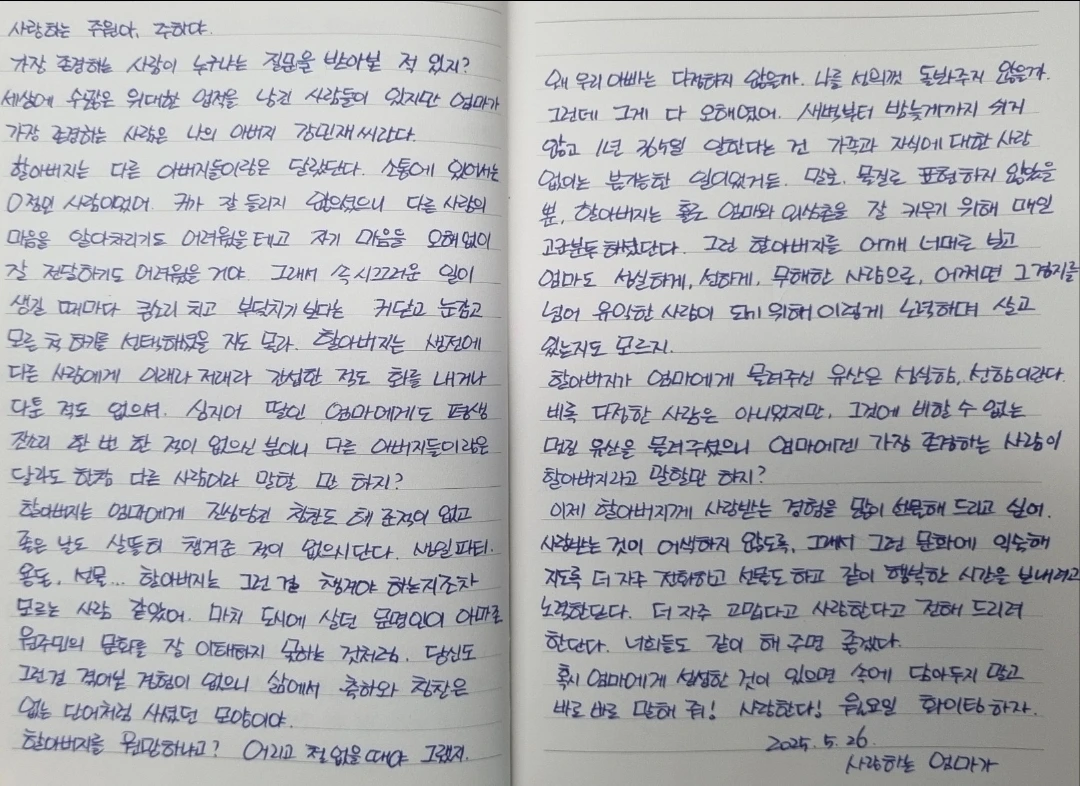 사랑하는 주원아, 주하야.
가장 존경하는 사람이 누구냐는 질문을 받아본 적 있지?
세상에 수많은 위대한 업적을 남긴 사람들이 있지만 엄마가
가장 존경하는 사람은 나의 아버지 강민재씨란다.
할아버지는 다른 아버지들이랑은 달랐단다. 소통에 있어서는
0점인 사람이었어. 귀가 잘 들리지 않으셨으니 다른 사람의
마음을 알아차리기도 어려웠을테고 자기 마음을 오해없이
잘 전달하기도 어려웠을 거야. 그래서 속 시끄러운 일이
생길 때마다 큰소리 치고 부딪치기 보다는 귀닫고 눈감고
모른 척 하기를 선택하셨을 지도 몰라. 할아버지는 생전에
다른 사람에게 이래라 저래라 간섭한 적도 화를 내거나
다툰 적도 없으셔. 심지어 딸인 엄마에게도 평생
잔소리 한 번 한 적이 없으신 분이니 다른 아버지들이랑은
달라도 한참 다른 사람이라 말할 만 하지?
할아버지는 엄마에게 진심담긴 칭찬도 해 준적이 없고
좋은 날도 살뜰히 챙겨준 적이 없으시단다. 생일파티.
용돈, 선물... 할아버지는 그런 걸 챙겨야 하는지조차
모르는 사람 같았어. 마치 도시에 살던 문명인이 아마존
원주민의 문화를 잘 이해하지 못하는 것처럼. 당신도
그런걸 겪어본 경험이 없으니 삶에서 축하와 칭찬은
없는 단어처럼 사셨던 모양이야.
할아버지를 원망하냐고? 어리고 철없을때야 그랬지.
왜 우리 아빠는 다정하지 않을까. 나를 성의껏 돌봐주지 않을까.
그런데 그게 다 오해였어. 새벽부터 밤늦게까지 쉬지
않고 1년 365일 일한다는 건 가족과 자식에 대한 사랑
없이는 불가능한 일이었거든. 말로, 물질로 표현하지 않았을
뿐, 할아버지는 홀로 엄마와 외삼촌을 잘 키우기 위해 매일
고군분투하셨단다. 그런 할아버지를 어깨 너머로 보고
엄마도 성실하게, 선하게, 무해한 사람으로, 어쩌면 그 경지를
넘어 유익한 사람이 되기 위해 이렇게 노력하며 살고
있는지도 모르지.
할아버지가 엄마에게 물려주신 유산은 성실함, 선함이란다.
비록 다정한 사람은 아니었지만, 그것에 비할 수 없는
멋진 유산을 물려주셨으니 엄마에겐 가장 존경하는 사람이
할아버지라고 말할만 하지?
이제 할아버지께 사랑받는 경험을 많이 선물해 드리고 싶어.
사랑받는 것이 어색하지 않도록, 그래서 그런 문화에 익숙해
지도록 더 자주 전화하고 선물도 하고 같이 행복한 시간을 보내려고
노력한단다. 더 자주 고맙다고 사랑한다고 전해 드리려
한단다. 너희들도 같이 해 주면 좋겠다.
혹시 엄마에게 섭섭한 것이 있으면 속에 담아두지 말고
바로 바로 말해 줘! 사랑한다! 월요일 화이팅하자.
2025. 5. 26.
사랑하는 엄마가